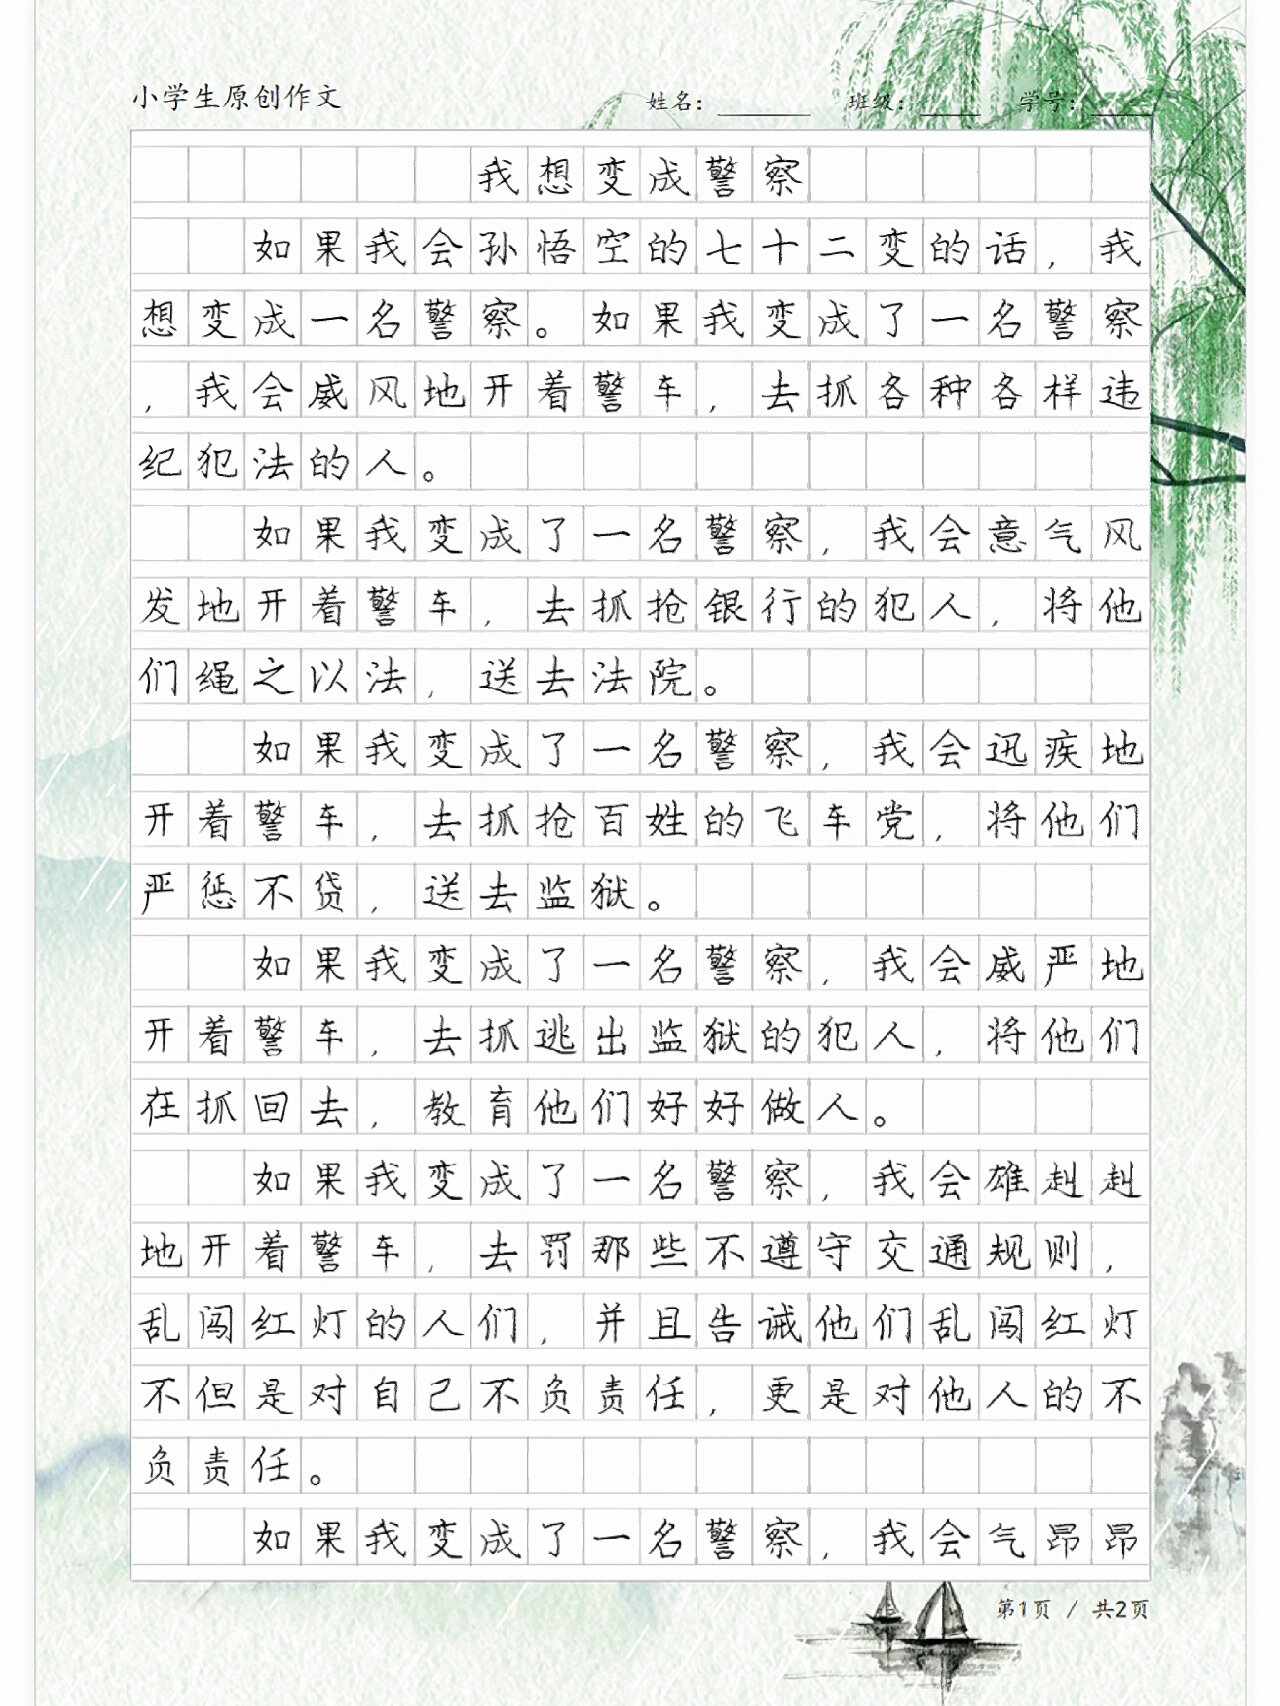 小学生原创作文 姓名： 班级： 学号：
我想变成警察
如果我会孙悟空的七十二变的话，我
想变成一名警察。如果我变成了一名警察
，我会威风地开着警车，去抓各种各样违
纪犯法的人。
如果我变成了一名警察，我会意气风
发地开着警车，去抓抢银行的犯人，将他
们绳之以法，送去法院。
如果我变成了一名警察，我会迅疾地
开着警车，去抓抢百姓的飞车党，将他们
严惩不贷，送去监狱。
如果我变成了一名警察，我会威严地
开着警车，去抓逃出监狱的犯人，将他们
在抓回去，教育他们好好做人。
如果我变成了一名警察，我会雄赳赳
地开着警车，去罚那些不遵守交通规则，
乱闯红灯的人们，并且告诫他们乱闯红灯
不但是对自己不负责任，更是对他人的不
负责任。
如果我变成了一名警察，我会气昂昂
第1页 / 共2页